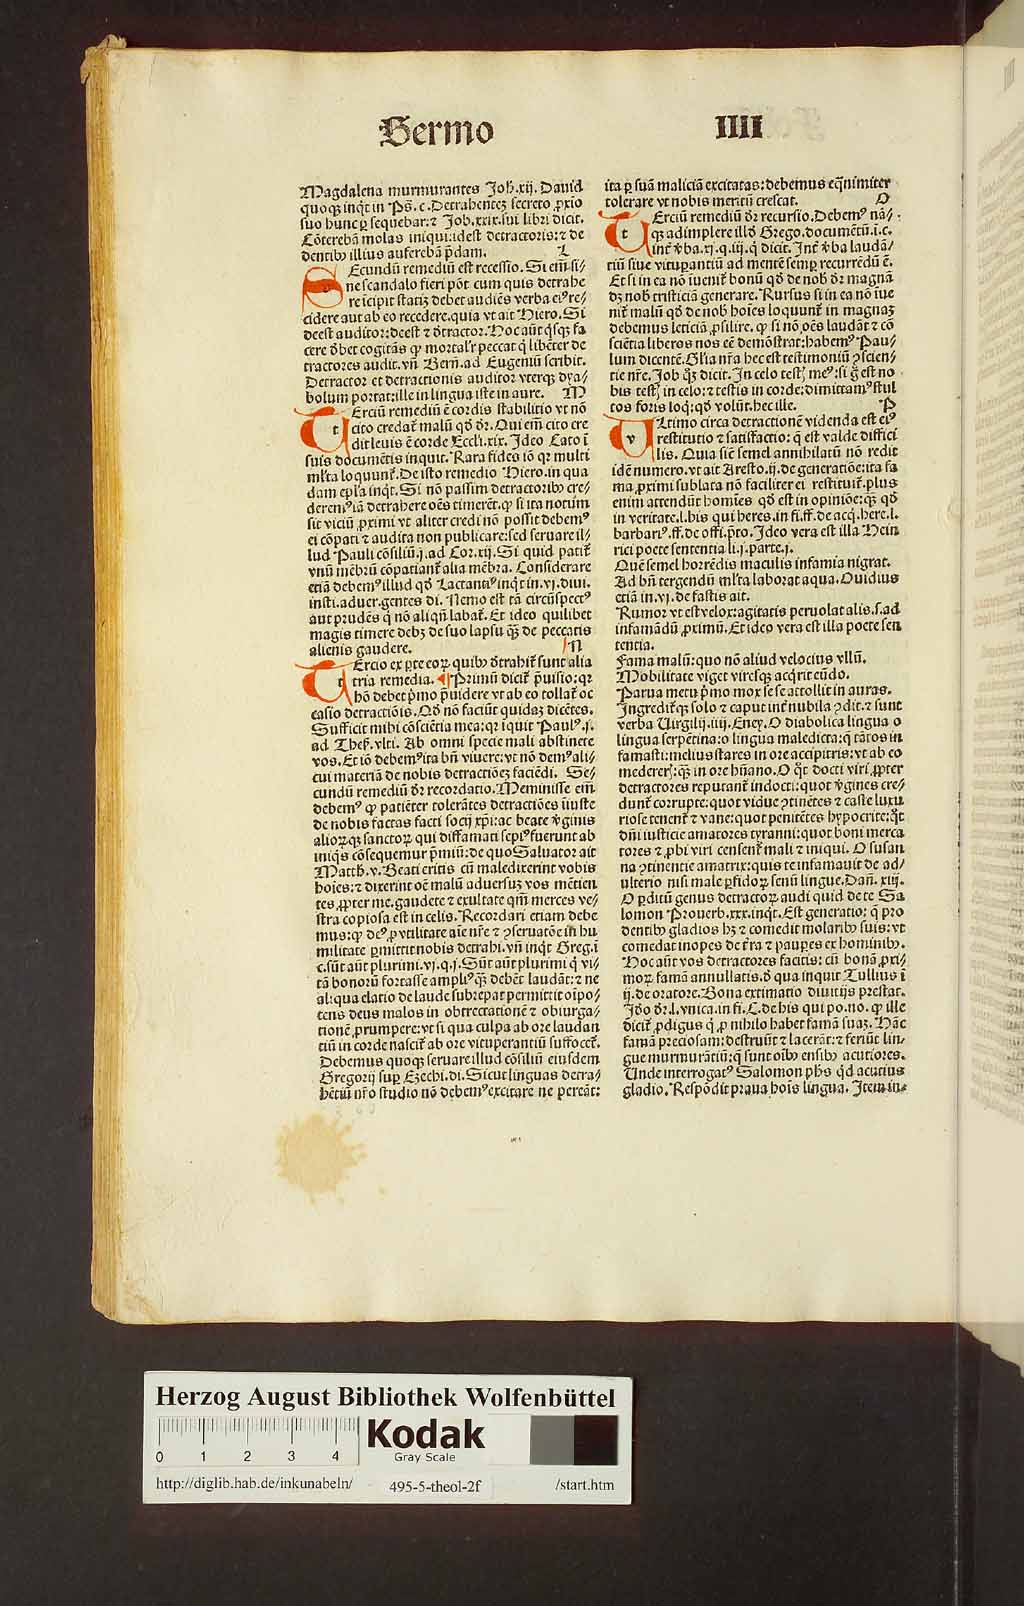 Sermo IIII
Magdalena murmurantes Joh̄.xij. Dauid
quoqꝫ inqt in Ps̄.c. Detrahenteꝫ secreto ꝓxio
suo hunc ꝑsequebar:⁊ Job.xxix.sui libri dicit.
Cōterebā molas iniqui:idest detractoris:⁊ de
dentibꝰ illius auferebā p̄dam. L
SEcundū remediū est recessio. Si em̄ si-
ne scandalo fieri pōt cum quis detrahe
re īcipit statiꝫ debet audiēs verba eiꝰ re-
cidere aut ab eo recedere.quia vt ait Hiero. Si
deest auditor:deest ⁊ detractor. Hoc aūt qsqꝫ fa
cere dꝫbet cogitās ꝙ mortalr̄ peccat q̄ libēter de
tractores audit.vn̄ Bern̄.ad Eugeniū scribit.
Detractor et detractionis auditor vterqꝫ dya-
bolum portat:ille in lingua iste in aure. M
TErciū remediū ē cordis stabilitio vt nō
cito credat̄ malū qđ dr̄. Qui em̄ cito cre
dit leuis ē corde Eccli.xix. Ideo Cato ī
suis documētis inquit. Rara fides iō qr multi
ml'ta loquunt̄. De isto remedio Hiero.in qua
dam epl'a inqt. Si nō passim detractoribꝰ cre-
deremꝰ iā detrahere oēs timerēt.ꝙ si ita notum
sit viciū ꝓximi vt aliter credi nō possit debemꝰ
ei cōpati ⁊ audita non publicare:sed seruare il-
lud Pauli cōsiliū.j.ad Cor.xij. Si quid patit̄
vnū mēbrū cōpatiant̄ alia mēbra. Considerare
etiā debemꝰ illud qđ Lactantiꝰ inqt in.vj.diui.
insti.aduer.gentes di. Nemo est tā circūspectꝰ
aut prudēs q̄ nō aliqn̄ labat̄. Et ideo quilibet
magis timere debꝫ de suo lapsu qꝫ de peccatis
alienis gaudere. N
TErcio ex ꝑte eoꝝ quibꝰ detrahit̄ sunt alia
tria remedia. Primū dicit̄ p̄uisio:qr
hō debet p̄mo p̄uidere vt ab eo tollat̄ oc
casio detractiōis. Qđ nō faciūt quidaꝫ dicētes.
Sufficit mihi cōsciētia mea:qr iquit Paulꝰ.j.
ad Thes̄.vlti. Ab omni specie mali abstinete
vos. Et iō debemꝰ ita bn̄ viuere:vt nō demꝰ ali-
cui materiā de nobis detractiōeꝫ faciēdi. Se-
cundū remediū dr̄ recordatio. Meminisse em̄
debemꝰ ꝙ patiēter tolerātes detractiōes iuste
de nobis factas facti socij xp̄i:ac beate v̄ginis
alioꝝqꝫ sanctoꝝ qui diffamati sepiꝰ fuerunt ab
iniqs cōsequemur p̄miū:de quo Saluator ait
Matth̄.v. Beati eritis cū maledixerint vobis
hoīes:⁊ dixerint oē malū aduersuꝫ vos mētien
tes ꝓpter me.gaudete ⁊ exultate qm̄ merces ve-
stra copiosa est in celis. Recordari etiam debe
mus:ꝙ deꝰ ꝓ vtilitate aīe nr̄e ⁊ ꝯseruatōe in hu
militate ꝑmittit nobis detrahi.vn̄ inqt Greg.ī
c.sūt aūt plurimi.vj.q.j. Sūt aūt plurimi q̄ vi-
tā bonorū fortasse ampliꝰ qꝫ debēt laudāt:⁊ ne
al:qua elatio de laude subrepat permittit oīpo-
tens deus malos in obtrectationē ⁊ obiurga-
tionē ꝓrumpere:vt si qua culpa ab ore laudan
tiū in corde nascit̄ ab ore vituperantiū suffocet̄.
Debemus quoqꝫ seruare illud cōsiliū eiusdem
Gregorij suꝑ Ezechi.di. Sicut linguas detra-
hētiū nr̄o studio nō debemꝰ excitare ne pereāt:
ita ꝑ suā maliciā excitatas:debemus eq̄nimiter
tolerare vt nobis meritū crescat. O
TErciū remediū dr̄ recursio. Debemꝰ nā-
qꝫ adimplere illđ Grego.documētū.i.c.
int̄ v̄ba.xj.q.iij.q̄ dicit. Int̄ v̄ba laudā-
tiū siue vituꝑantiū ad mentē semꝑ recurrēdū ē.
Et si in ea nō iuenit̄ bonū qđ de nob dr̄ magnā
dꝫ nob tristiciā generare. Rursus si in ea nō iue
nit̄ malū qđ de nob hoīes loquunt̄ in magnaꝫ
debemus leticiā ꝓsilire. ꝙ si nō oēs laudāt ⁊ cō
sciētia liberos nos eē demōstrat:habemꝰ Pau-
lum dicentē. Gl'ia nr̄a hec est testimoniū ꝯscien-
tie nr̄e. Job qꝫ dicit. In celo testꝭ meꝰ:si g̊ est no
bis testꝭ in celo:⁊ testis in corde:dimittamꝰ stul
tos foris loq:qđ volūt.hec ille. P
VLtimo circa detractionē videnda est eiꝰ
restitutio ⁊ satisfactio:q̄ est valde diffici
lis. Quia sic̄ semel annihilatū nō redit
idē numero.vt ait Aresto.ij.de generatiōe:ita fa
ma ꝓximi sublata nō faciliter ei restituit̄.plus
enim attendūt homīes qđ est in opiniōe:qꝫ qđ
in veritate.l.bis qui heres.in fi.ff.de acq.here.l.
barbariꝰ.ff.de offi.p̄to. Ideo vera est illa Hein
rici poete sententia li.j.parte.j.
Quē semel horrēdis maculis infamia nigrat.
Ad bn̄ tergendū ml'ta laborat aqua. Ouidius
etiā in.vj.de fastis ait.
Rumor vt est velox:agitatis peruolat alis.s.ad
infamādū ꝓximū. Et ideo vera est illa poete sen
tentia.
Fama malū:quo nō aliud velocius vllū.
Mobilitate viget viresqꝫ acqrit eūdo.
Parua metu p̄mo mox sese attollit in auras.
Ingredit̄qꝫ solo ⁊ caput int̄ nubila ꝯdit.⁊ sunt
verba Uirgilij.iiij.Eney. O diabolica lingua o
lingua serpētina:o lingua maledicta:q̄ tātos in
famasti:melius stares in ore accipitris:vt ab eo
medereris:qꝫ in ore hūano. O qt docti viri ꝓpter
detractores reputant̄ indocti:quot v̄gines cre-
dunt̄ corrupte:quot vidue ꝯtinētes ⁊ caste luxu
riose tenent̄ ⁊ vane:quot penitētes hypocrite:qt
dn̄i iusticie amatores tyranni:quot boni merca
tores ⁊ ꝓbi viri censent̄ mali ⁊ iniqui. O susan
na ꝯtinentie amatrix:quis te infamauit de ad-
ulterio nisi male ꝑfidoꝝ senū lingue. Dan̄.xiij.
O ꝑditū genus detractoꝝ audi quid de te Sa
lomon Prouerb.xxx.inqt. Est generatio:q̄ pro
dentibꝰ gladios hꝫ ⁊ comedit molaribꝰ suis:vt
comedat inopes de t̄ra ⁊ pauꝑes ex hominibꝰ.
Hoc aūt vos detractores facitis:cū bonā ꝓxi-
moꝝ famā annullatis.đ qua inquit Tullius ī
ij.de oratore. Bona extimatio diuitijs prestat.
Iđo dr̄.l.vnica.in fi.C.de his qui po.no.ꝙ ille
dicit̄ ꝓdigus q̄ ꝓ nihilo habet famā suaꝫ. Hāc
famā preciosam:destruūt ⁊ lacerāt:⁊ feriūt lin-
gue murmurātiū:q̄ sunt oībꝰ ensibꝰ acutiores.
Unde interrogatꝰ Salomon ph̄s qđ acutius
gladio. Respōdit praua hoīs lingua. Item in-
Herzog August Bibliothek Wolfenbüttel
0 1 2 3 4
Kodak
Gray Scale
http://diglib.hab.de/inkunabeln/ 495-5-theol-2f /start.htm